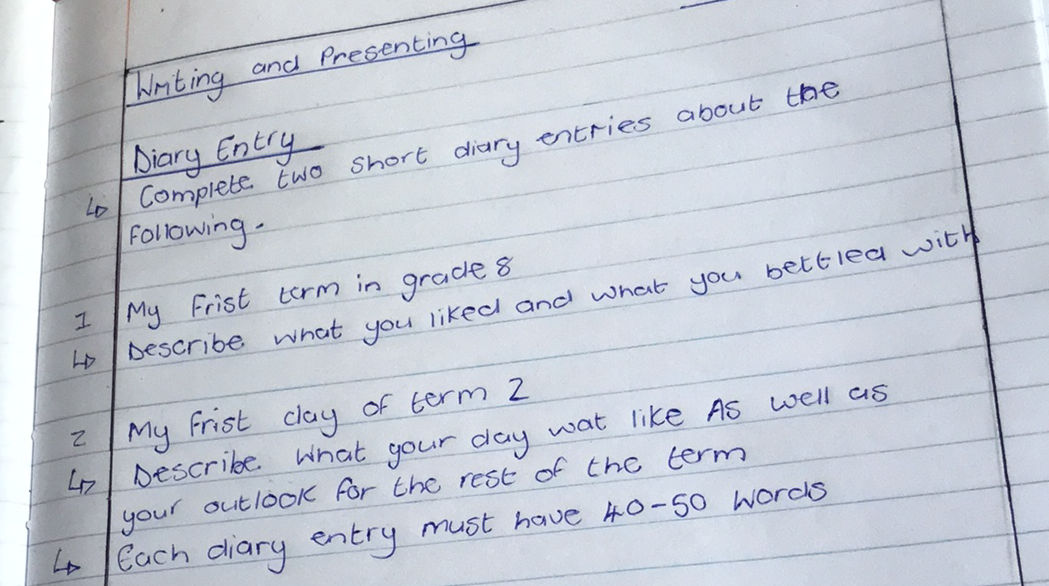 Writing and Presenting
Diary Entry
↳ Complete two short diary entries about the
following.
1 My Frist term in grade 8
↳ Describe what you liked and what you bettled with
2 My frist day of term 2
↳ Describe what your day wat like As well as
your outlook for the rest of the term
↳ Each diary entry must have 40-50 words